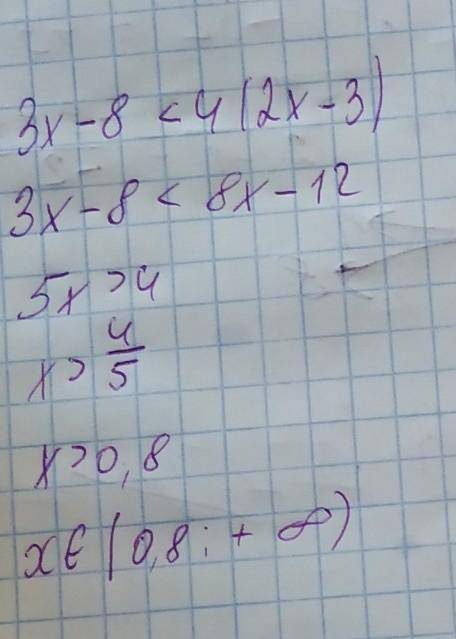 3x-8 < 4(2x-3)
3x-8 < 8x-12
5x > 4
x > 4/5
x > 0,8
x ∈ (0,8 ; + ∞)